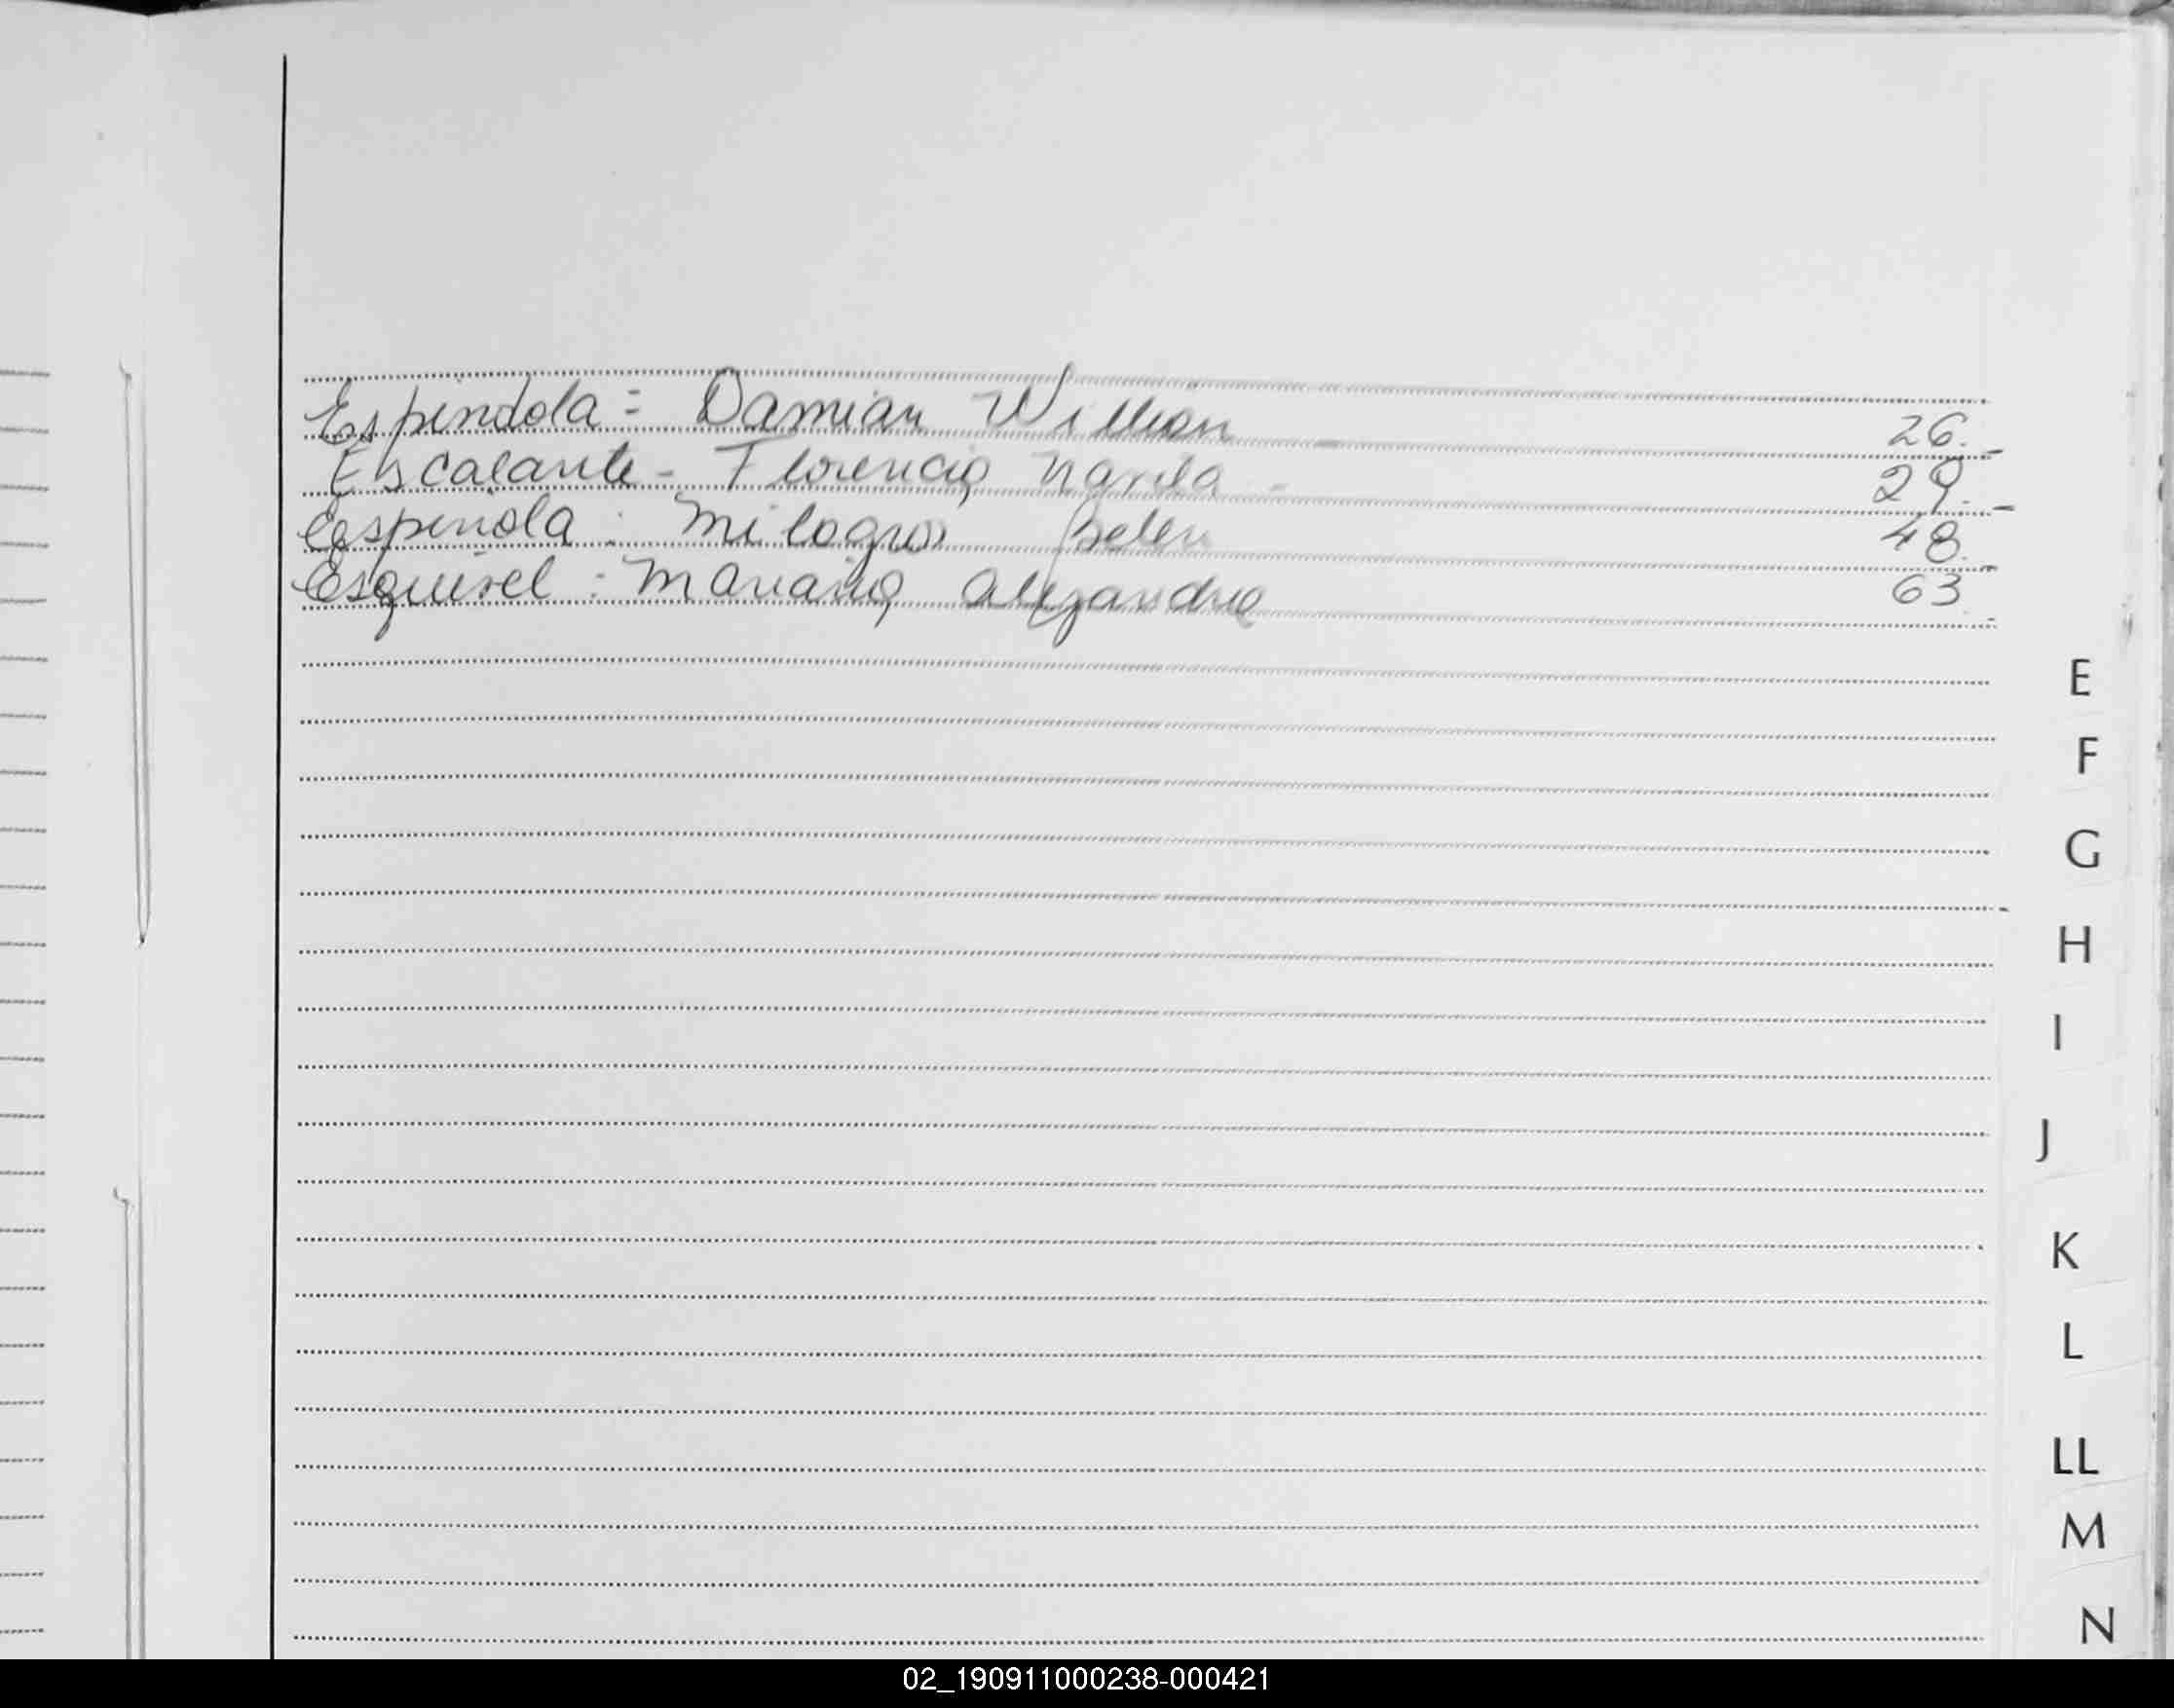 Espindola = Damian Willian - 26.-
Escalante - Florencia Narela - 29.-
Espinola : Milagros Belen 48.-
Esquivel : Mariana Alejandra 63.-
E
F
G
H
I
J
K
L
LL
M
N
02_190911000238-000421